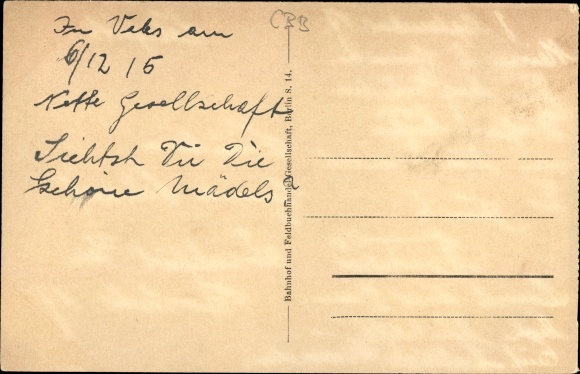 CBB
In Veles am
6/12 15
Nette Gesellschaft
Siehtsh Du Die
schöne Mädels
Bahnhof und Feldbuchhandel Gesellschaft, Berlin S. 14.